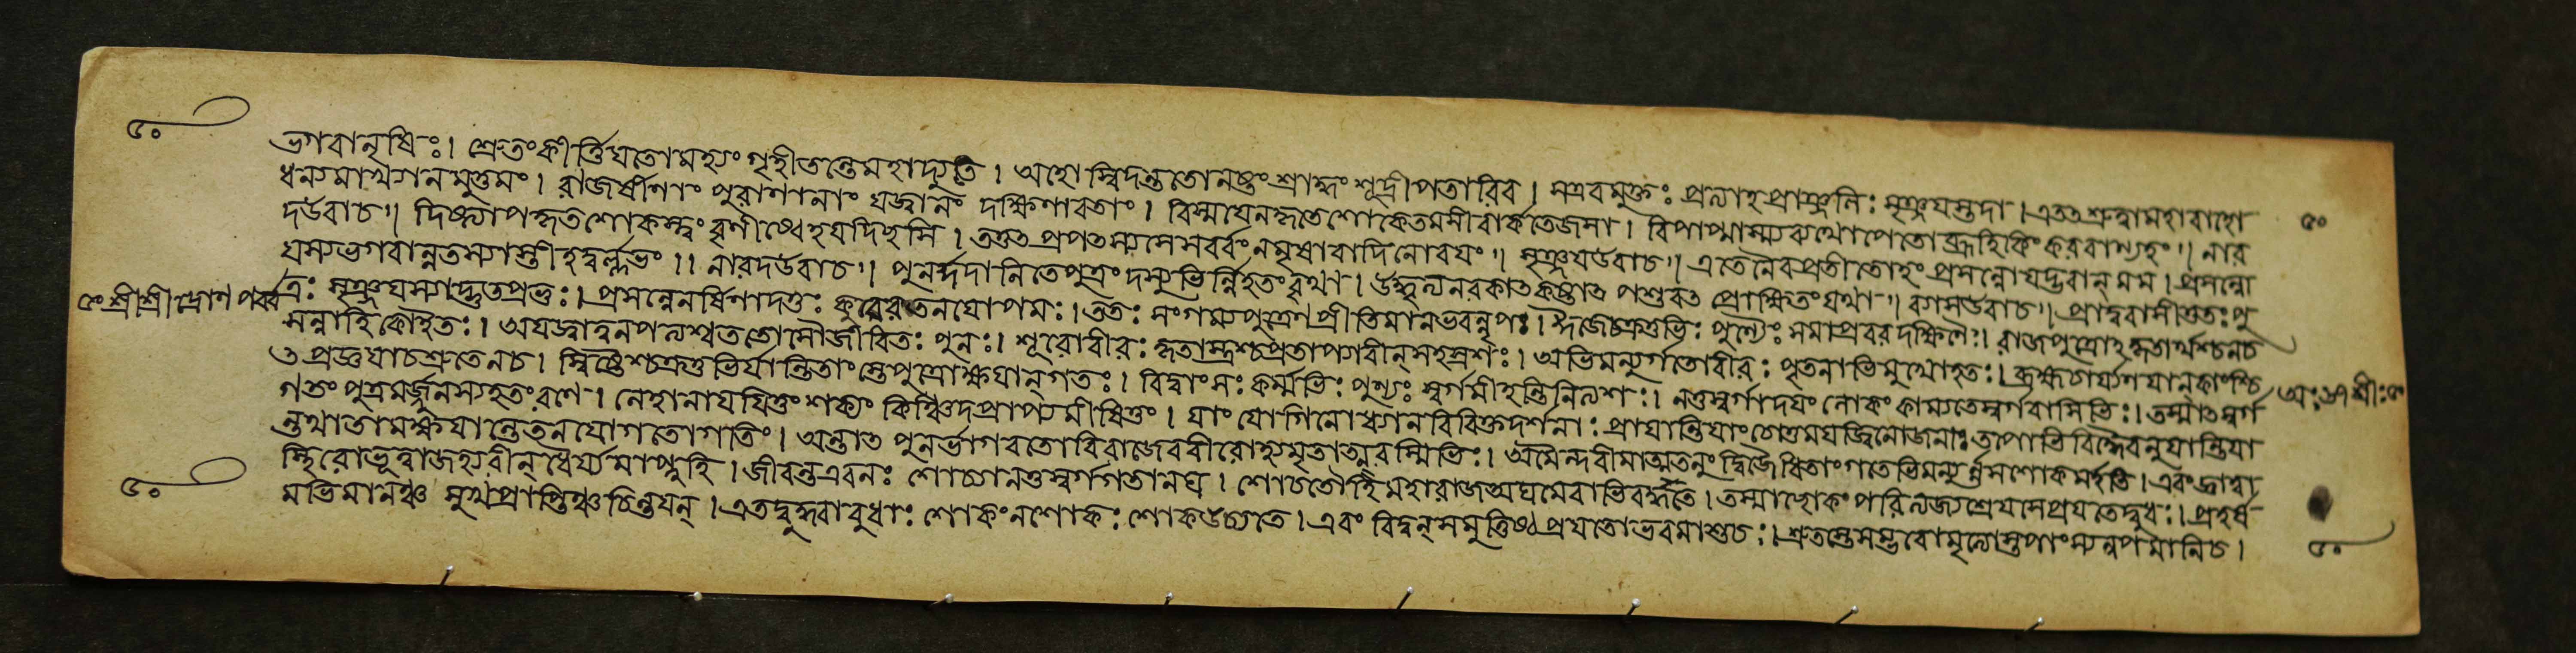 ৫০
ভগবানৃষিঃ। শ্রুতংকীর্ত্তিয়তোমহ্যংগৃহীতন্তেমহাদ্যুতে। অহোস্বিদন্ততোনষ্টংশ্রাদ্ধংশূদ্রীপতাবিব। সএবমুক্তঃ প্রত্যাহপ্রাঞ্জলিঃ সৃঞ্জয়স্তদা। এতৎশ্রুত্বামহাবাহো
ধন্যমাখ্যানমুত্তমং। রাজর্ষীণাং পুরাণানাং যজ্বানং দক্ষিণাবতাং। বিস্ময়েনহৃতেশোকেতমসীবার্কতেজসা। বিপাপ্মাস্ম্যব্যথোপেতোব্রূহিকিংকরবাণ্যহং॥ নার
দউবাচ॥ দিষ্ট্যাপহৃতশোকস্ত্বং বৃণীষ্বেহযদিছসি। তত্তৎ প্রপৎস্যসেসর্ব্বংনমৃষাবাদিনোবয়ং॥ সৃঞ্জয়উবাচ॥ এতেনৈবপ্রতীতোহং প্রসন্নোযদ্ভবান্ মম। প্রসন্নো
যস্যভগবান্নতস্যাস্তীহদুর্ল্লভং॥ নারদউবাচ॥ পুনর্দ্দদানিতেপুত্রং দস্যুভির্ন্নিহতংবৃথা। উদ্ধৃত্যনরকাৎকষ্টাৎ পশুবৎ প্রোক্ষিতংযথা॥ ব্যাসউবাচ॥ প্রাদুরাসীত্ততঃপু
৫০ শ্রীশ্রীদ্রোণপর্ব্ব
ত্রঃ সৃঞ্জয়স্যাদ্ভুতপ্রভঃ। প্রসন্নেনর্ষিণাদত্তঃ কুবেরতনয়োপমঃ। ততঃ সংগম্যপুত্রেণপ্রীতিমানভবন্নৃপঃ। ঈজেচক্রতুভিঃ পুণ্যৈঃ সমাপ্তবরদক্ষিণৈঃ। রাজপুত্রোহকৃতার্থশ্চনচ
সন্নাহিকোহতঃ। অযজ্বাহ্যনপত্যশ্চততোসৌজীবিতঃ পুনঃ। শূরোবীরঃ কৃতাস্ত্রশ্চপ্রতাপ্যারীন্সহস্রশঃ। অভিমন্যুর্গতোবীরঃ পৃতনাভিমুখোহতঃ। ব্রহ্মচর্য্যেণযান্কাংশ্চি
ৎ প্রজ্ঞয়াচশ্রুতেনচ। স্বিষ্টৈশ্চক্রতুভির্যান্তিতাংস্তেপুত্রোক্ষয়ান্গতঃ। বিদ্বাংসঃ কর্ম্মভিঃ পুণ্যৈঃ স্বর্গমীহন্তিনিত্যশঃ। নতুস্বর্গাদয়ং লোকং কাম্যতেস্বর্গবাসিভিঃ। তস্মাৎস্বর্গ
গতং পুত্রমর্জুনস্যহতংরণে। নেহানায়য়িতুং শক্যং কিঞ্চিদপ্রাপ্যমীষিতুং। যাং যোগিনোধ্যানবিবিক্তদর্শনাঃ প্রযান্তিযাংচোত্তমযজ্বিনোজনাঃ তপোভিরিদ্ধৈরনুযান্তিযা
ন্তথাতামক্ষয়ান্তেতনয়োগতোগতিং। অন্তাৎ পুনর্ভাগবতোবিরাজেববীরোহ্যমৃতাত্মরশ্মিভিঃ। অমৈন্দবীমাত্মতনুং দ্বিজৈধিতাংগতোভিমন্যুর্ন্নসশোকমর্হতি। এবংজ্ঞাত্বা
স্থিরোভূত্বাজহ্যরীন্ধৈর্য্যমাপ্নুহি। জীবন্তএবনঃ শোচ্যানতুস্বর্গগতানঘ। শোচতোহিমহারাজঅঘমেবাভিবর্দ্ধতে। তস্মাচ্ছোকং পরিত্যজ্যশ্রেয়সেপ্রযতেদ্বুধঃ। প্রহর্ষ
মভিমানঞ্চ সুখপ্রাপ্তিঞ্চচিন্তয়ন্। এতদ্বুদ্ধাবুধাঃ শোকংনশোকঃ শোকউচ্যতে। এবং বিদ্বন্সমুত্তিষ্ঠ প্রযতোভবমাশুচঃ। শ্রুতস্তেসম্ভবোমৃত্যোস্তপাংস্যনুপমানিচ।
৫০
৫০
৫০